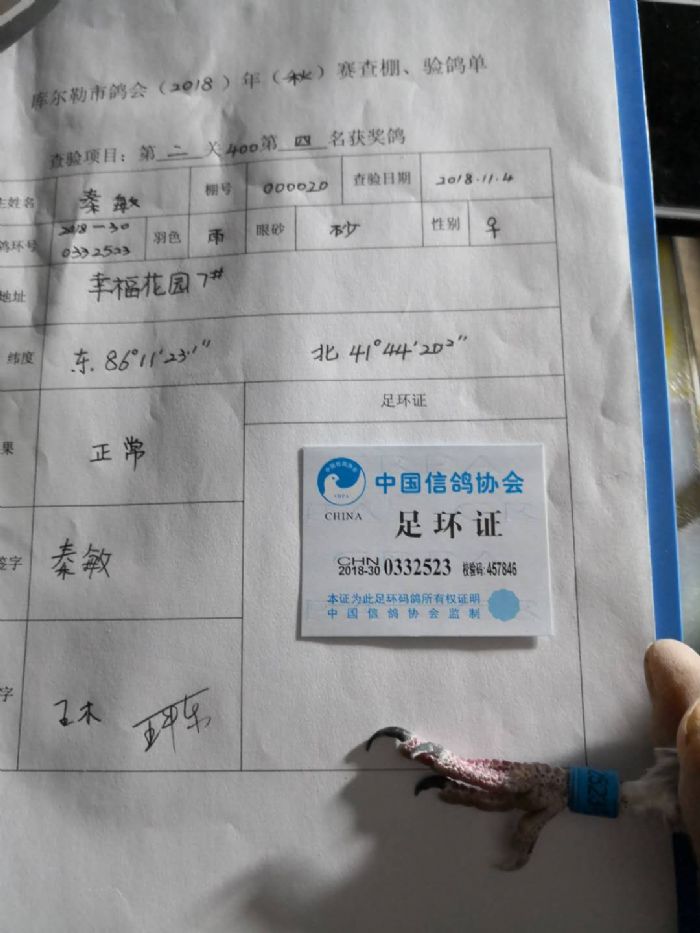 库尔勒市鸽会（2018）年（秋）赛查棚、验鸽单
查验项目：第二关400第四名获奖鸽
主姓名 秦敏 棚号 000020 查验日期 2018.11.4
鸽环号 2018-30 0332523 羽色 雨 眼砂 砂 性别 ♀
地址 幸福花园7#
纬度 东.86°11'23.1" 北 41°44'20.2"
果 正常 足环证
中国信鸽协会
CHINA 足环证
CHN
2018-30 0332523 校验码:457846
本证为此足环码鸽所有权证明
中国信鸽协会监制
签字 秦敏
字 王木